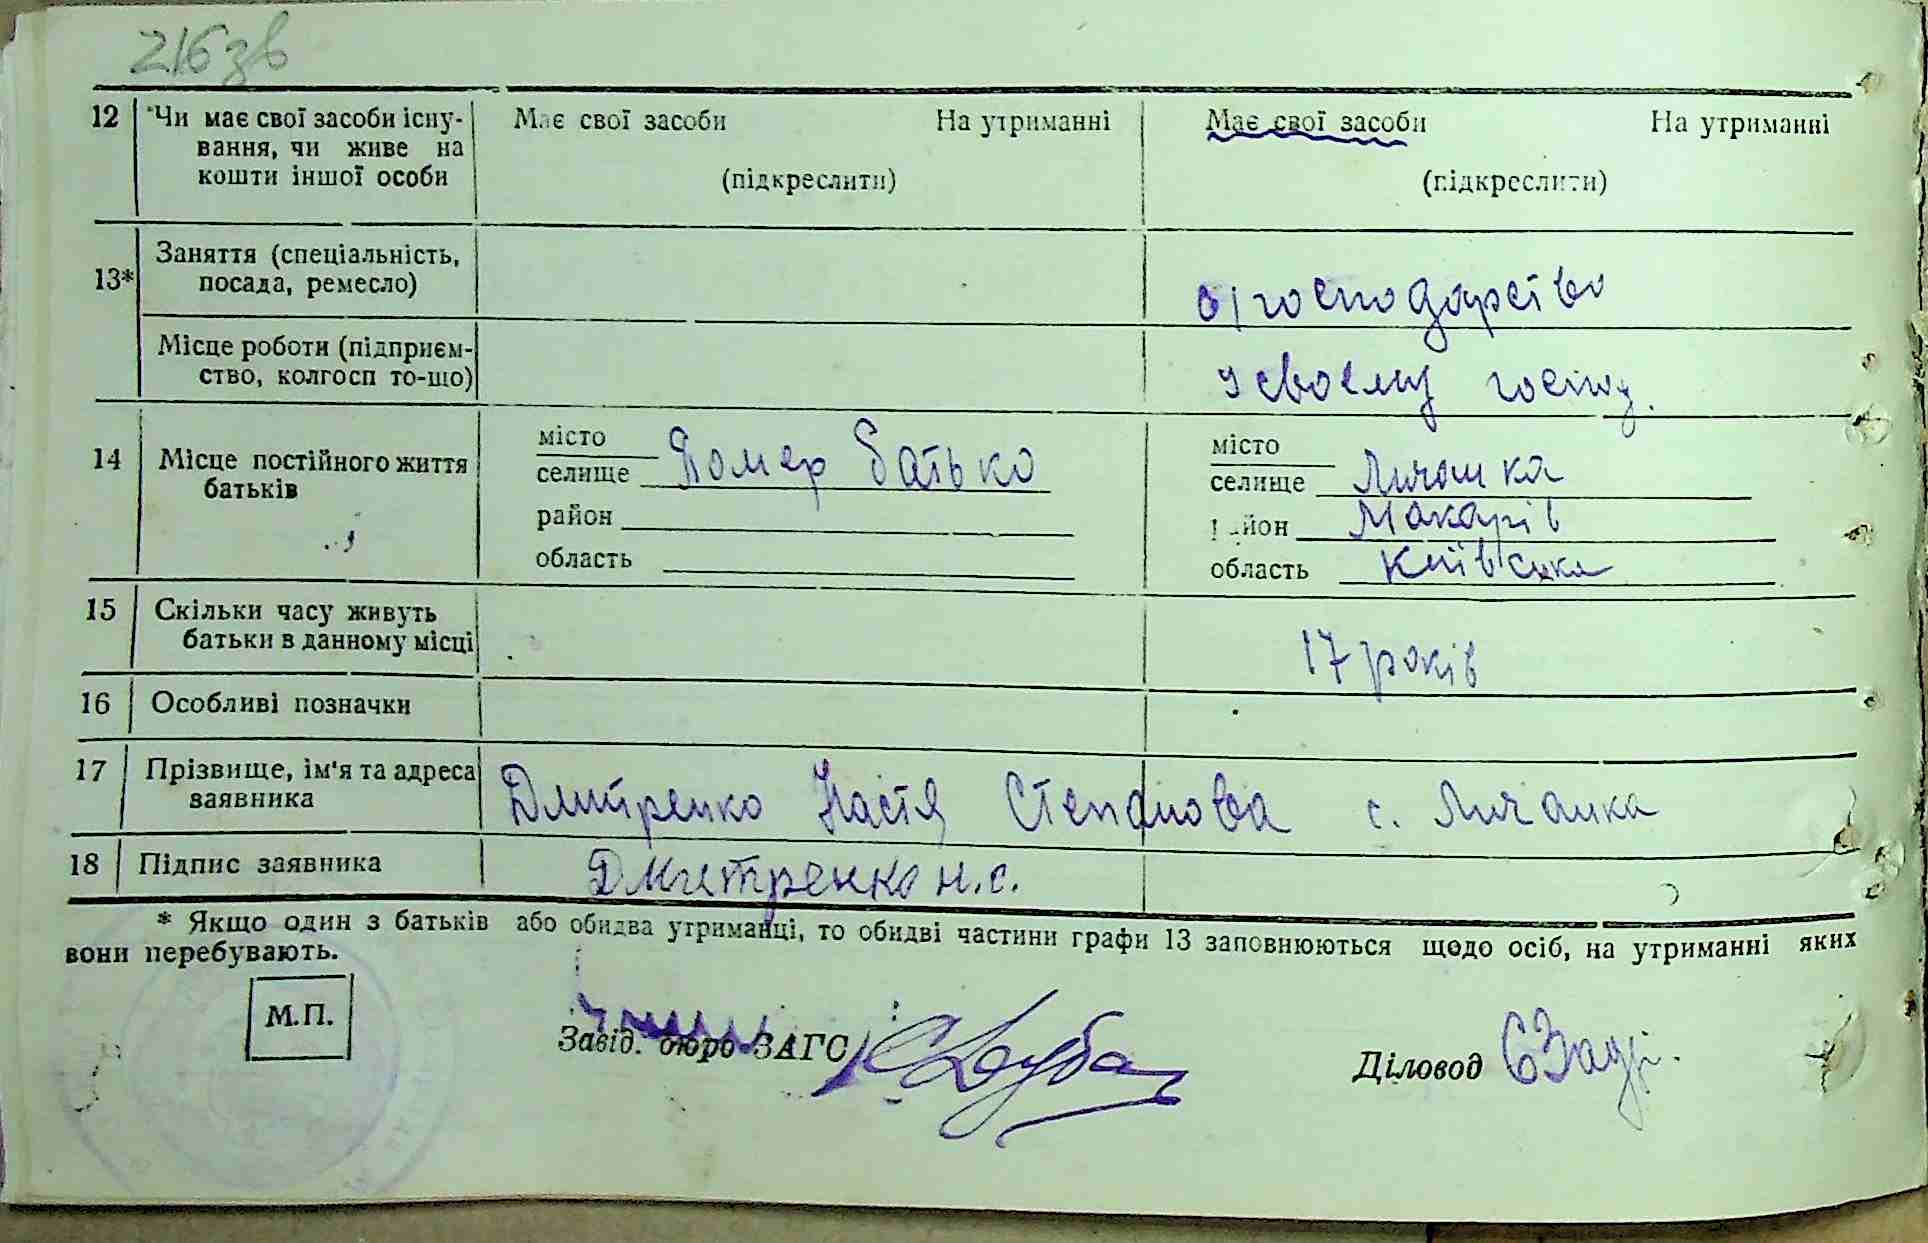 216 зв
12 Чи має свої засоби існу- Має свої засоби На утриманні Має свої засоби На утриманні
вання, чи живе на
кошти іншої особи (підкреслити) (підкреслити)
13* Заняття (спеціальність,
посада, ремесло) с/господарство
Місце роботи (підприєм-
ство, колгосп то-що) у своєму господ.
14 Місце постійного життя батьків
місто
селище Помер батько
район
область
місто
селище Личанка
район Макарів
область Київська
15 Скільки часу живуть
батьки в данному місці 17 років
16 Особливі позначки
17 Прізвище, ім'я та адреса
заявника Дмитренко Настя Степанова с. Личанка
18 Підпис заявника Дмитренко Н.С.
* Якщо один з батьків або обидва утриманці, то обидві частини графи 13 заповнюються щодо осіб, на утриманні яких
вони перебувають.
М.П.
Завід. бюро ЗАГС
Діловод